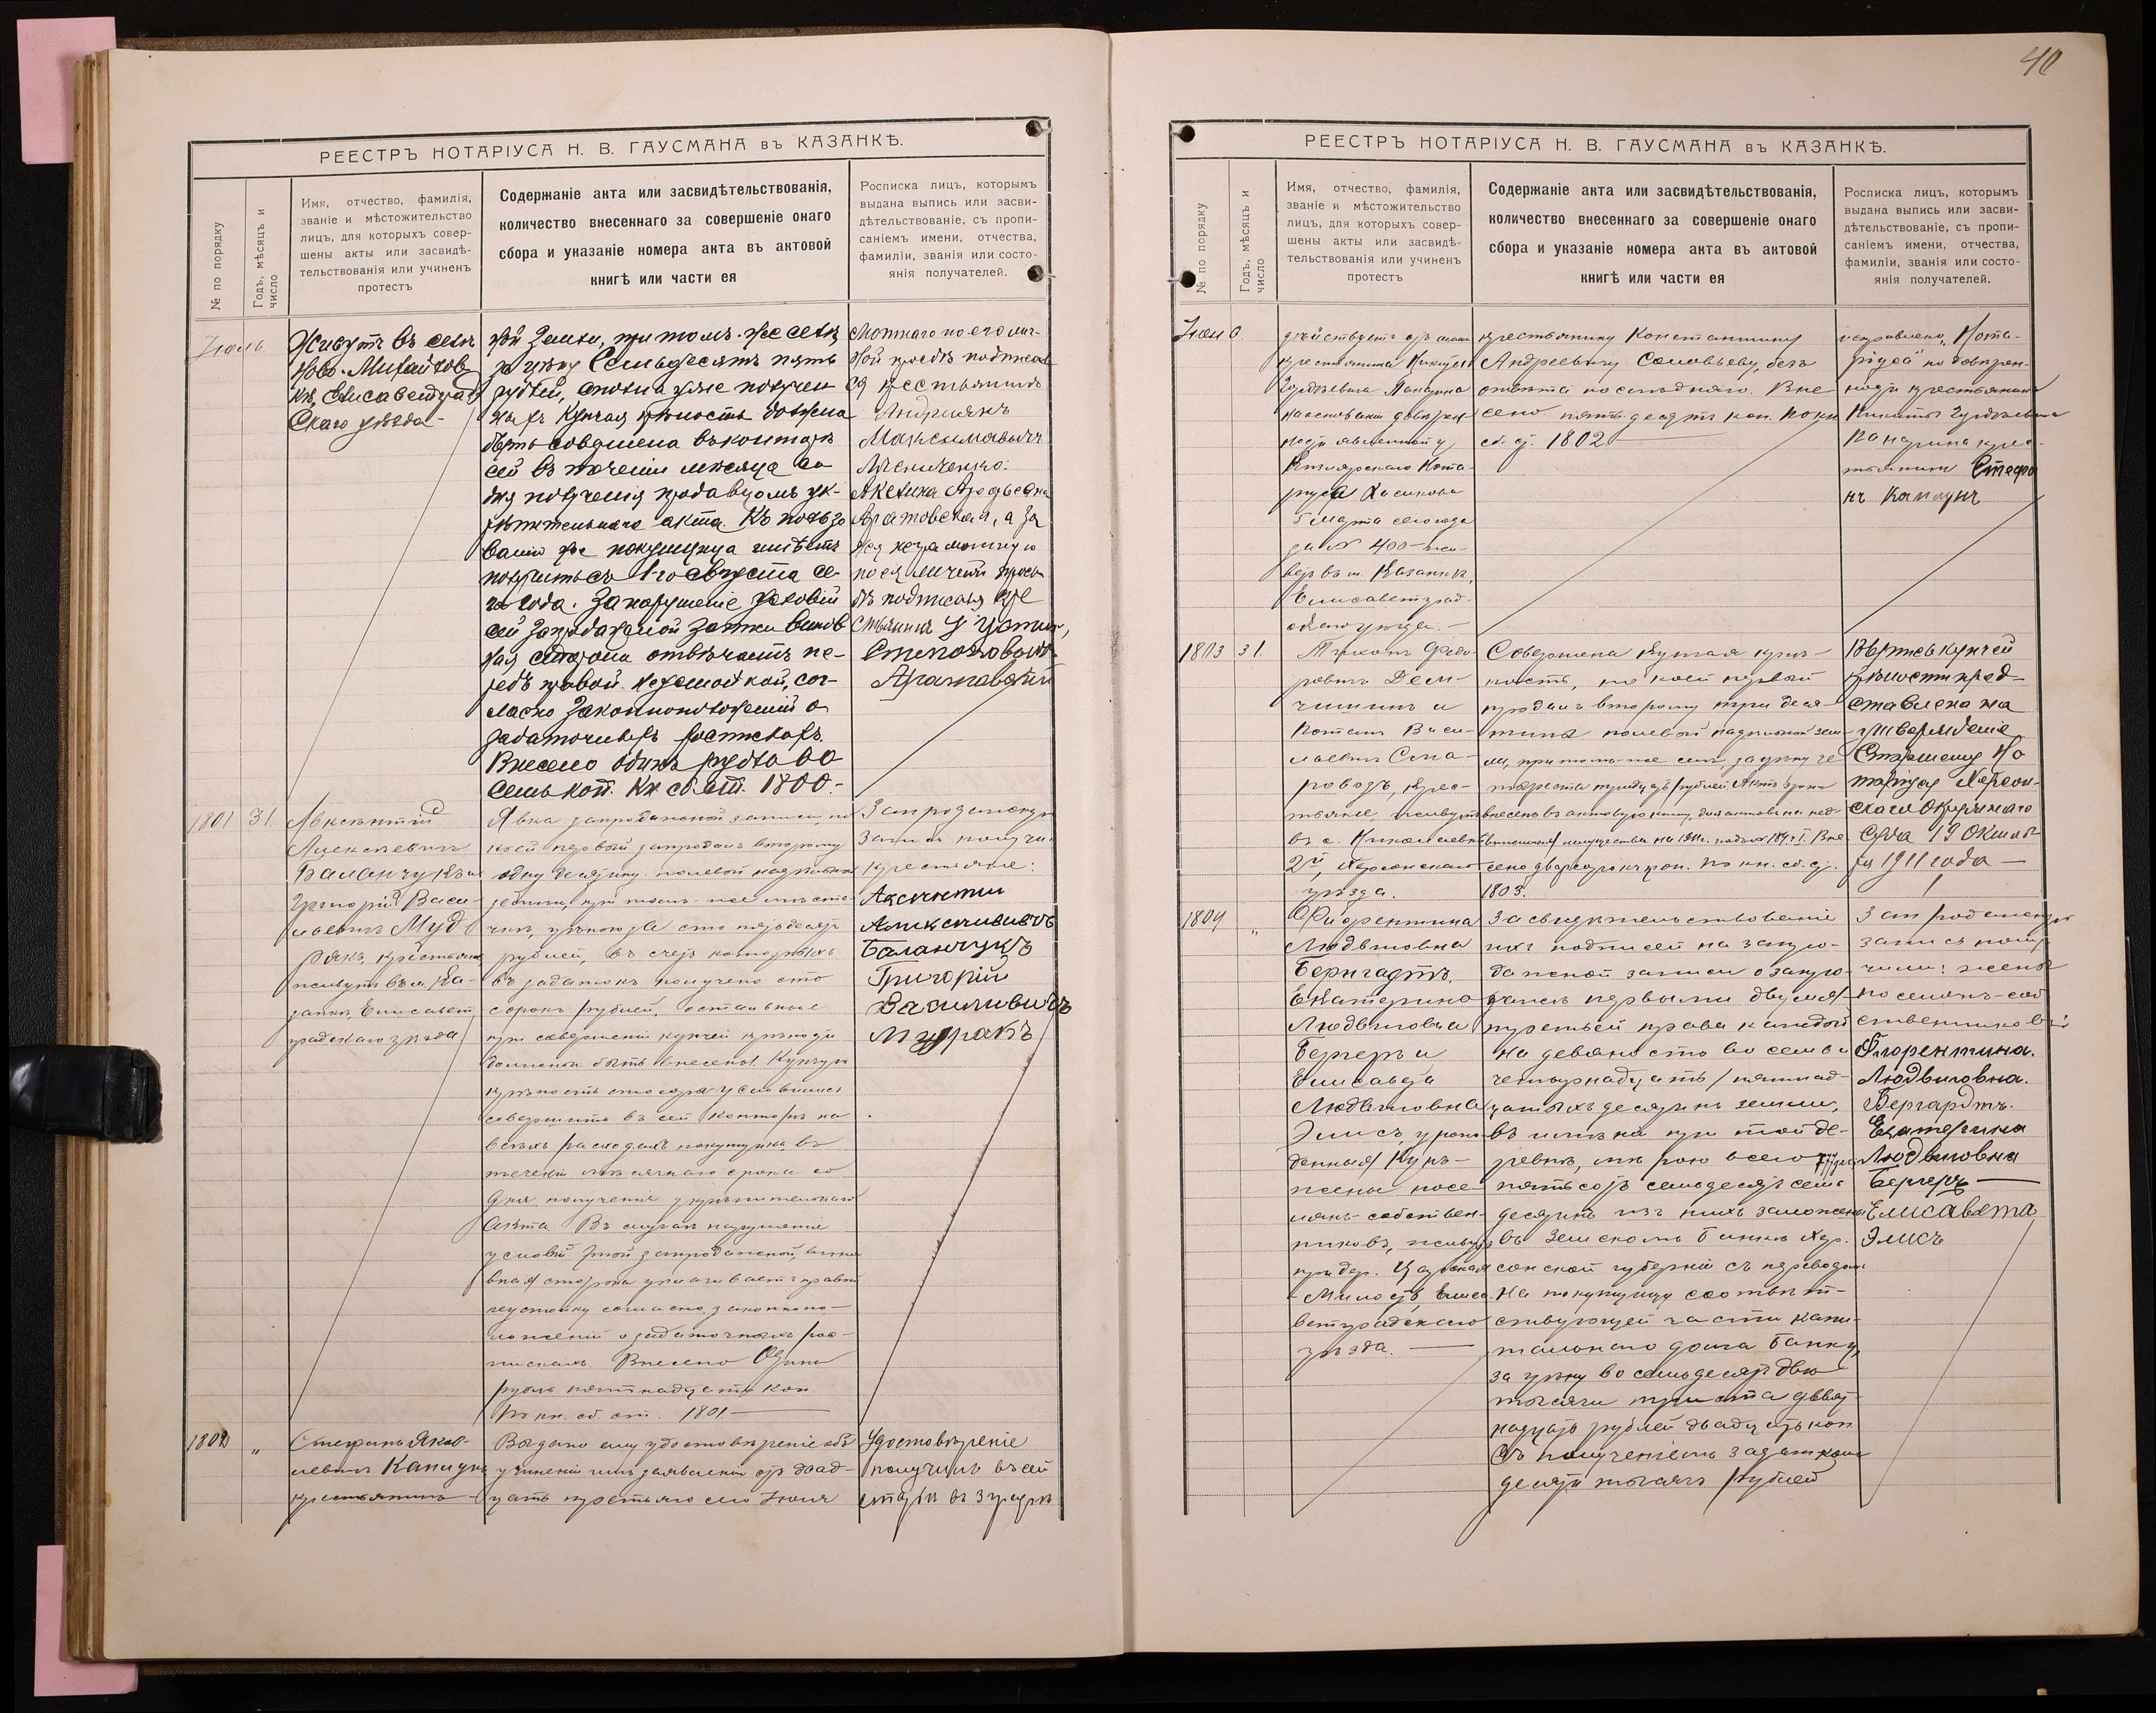 40
РЕЕСТРЪ НОТАРІУСА Н. В. ГАУСМАНА въ КАЗАНКѢ.
№ по порядку
Годъ, мѣсяцъ и
число
Имя, отчество, фамилія,
званіе и мѣстожительство
лицъ, для которыхъ совер-
шены акты или засвидѣ-
тельствованія или учиненъ
протестъ
Содержаніе акта или засвидѣтельствованія,
количество внесеннаго за совершеніе онаго
сбора и указаніе номера акта въ актовой
книгѣ или части ея
Росписка лицъ, которымъ
выдана выпись или засви-
дѣтельствованіе, съ пропи-
саніемъ имени, отчества,
фамиліи, званія или состо-
янія получателей.
Іюль
Живутъ въ селѣ
Ново-Михайлов
кѣ, Елисаветград
скаго уѣзда-
ной земли, при томъ-же селѣ
за цѣну Семьдесятъ пять
рублей, сполна уже получен
ныхъ Купчая крѣпость должна
быть совершена въ конторѣ
сей въ теченіи мѣсяца со
дня полученія продавцомъ ук-
рѣпительнаго акта. Къ пользо
ванію же покупщица имѣетъ
1-го Августа се-
го года. За нарушеніе условій
сей запродажной записи винов
ная сторона отвѣчаетъ пе-
редъ правой неустойкой, сог-
ласно законоположеній о
задаточныхъ роспискахъ.
Внесено одинъ рубль 00
семь коп. Кн сб. ст. 1800.-
мотнаго по его лич-
ной просьбѣ подписал
ся крестьянинъ
Андріянъ
Максимовичъ
Лѣсниченко.
Аратовская, а за
нея неграмотную
по ея личной прось
бѣ подписался кре
стьянинъ
Степановичъ
Аратовскій
1801 31
Авксентій
Алексѣевичъ
Баланчукъ и
Григорій Васи-
льевичъ Муд-
ракъ, крестьяне
живутъ въ м. Ка-
занкѣ, Елисавет
градскаго уѣзда
Явка запродажной записи, по
коей первый запродалъ второму
одну десятину полевой надѣльной
земли, при томъ-же мѣсте-
чкѣ, цѣною за сто пятьдесятъ
рублей, въ счетъ которыхъ
въ задатокъ получено сто
сорокъ рублей, остальные
при совершеніи купчей крѣпости
должны быть внесены. Купчую
крѣпость стороны условились
совершить въ сей конторѣ на
всѣхъ расходахъ покупщика, въ
теченіи мѣсячнаго срока со
дня полученія укрѣпительнаго
акта Въ случаѣ нарушенія
условій этой запродажной, винов
ная сторона уплачиваетъ правой
неустойку согласно законопо-
ложеній о задаточныхъ рос-
пискахъ. Внесено Одинъ
рубль пятнадцать коп.
По кн. сб. ст. 1801.
Запродажную
запись получили
крестьяне:
Аксентий
Алексиевичъ
Баланчукъ
Григорій
Василивичъ
Мудракъ
1802 „
Стефанъ Яков-
левичъ Канцунъ
крестьянинъ
Выдано ему удостовѣреніе объ
учиненіи имъ заявленіи отъ двад-
цать третьяго сего Іюля
Удостовѣреніе
получилъ въ сей
РЕЕСТРЪ НОТАРІУСА Н. В. ГАУСМАНА въ КАЗАНКѢ.
№ по порядку
Годъ, мѣсяцъ и
число
Имя, отчество, фамилія,
званіе и мѣстожительство
лицъ, для которыхъ совер-
шены акты или засвидѣ-
тельствованія или учиненъ
протестъ
Содержаніе акта или засвидѣтельствованія,
количество внесеннаго за совершеніе онаго
сбора и указаніе номера акта въ актовой
книгѣ или части ея
Росписка лицъ, которымъ
выдана выпись или засви-
дѣтельствованіе, съ пропи-
саніемъ имени, отчества,
фамиліи, званія или состо-
янія получателей.
Іюль
дѣйствуетъ отъ имени
крестьянина Никиты
на основаніи довѣрен
ности явленной у
Нота-
ріуса
5 Марта сего года
за № 400- жи-
ветъ въ м. Казанкѣ,
Елисаветград-
скаго уѣзда.-
крестьянину Константину
Андреевичу Соловьеву, безъ
отвѣта послѣдняго. Вне
сено пятьдесятъ коп. по кн
сб. ст. 1802
исправлено „Нота-
ріуса" по довѣрен-
ности крестьянина
Никиты
крес-
тьянинъ Стефа
нъ Канцунъ
1803 31.
Тихонъ Федо-
ровичъ Дем-
чишинъ и
Потапъ Васи-
льевичъ Сма-
роводъ, крес-
тьяне, живутъ
въ с. Николаевкѣ
2й, Херсонскаго
уѣзда.
Совершена купчая крѣ-
пость, по коей первый
продалъ второму три деся-
тины полевой надѣльной зем-
ли, при томъ-же селѣ, за цѣну че
тыреста тридцать рублей Актъ этотъ
внесенъ въ актовую книгу, для актовъ на нед-
вижимыя имущества на 1911г.
1803.
Выпись купчей
крѣпости пред-
ставлена на
утвержденіе
Старшему Но
таріусу Херсон-
скаго Окружнаго
Суда 19 Октяб-
ря 1911 года —
1804 „
Флорентина
Людвиговна
Бернгардтъ,
Екатерина
Людвиговна
Бергеръ и
Елисавета
Людвиговна
Элисъ, урож-
денныя Кун-
жены посе-
лянъ-собствен-
никовъ, живутъ
при дер. Царская
-Милость, Елиса-
ветградскаго
уѣзда. —
Засвидѣтельствованіе
ихъ подписей на запро-
дажной записи о запро-
дажѣ первыми двумя
третьей права каждой
на девяносто восемь и
четырнадцать/пятнад-
цатыхъ десятинъ земли,
въ имѣніи при той де-
ревнѣ, мѣрою всего
пятьсотъ семьдесятъ семь
десятинъ изъ нихъ заложены
въ Земскомъ Банкѣ Хер-
сонской губерніи съ переводомъ
на покупщицу соотвѣт-
ствующей части капи-
тальнаго долга Банку,
за цѣну восемьдесятъ двѣ
тысячи триста двѣнад-
надцать рублей двадцать коп.
Съ полученіемъ задаткомъ
десяти тысячъ рублей
Запродажную
запись полу-
чили: жены
поселянъ-соб
ственниковъ:
Флорентина.
Людвиговна.
Бергардтъ.
Екатерина
Людвиговна
Бергеръ —
Елисавета
Элисъ